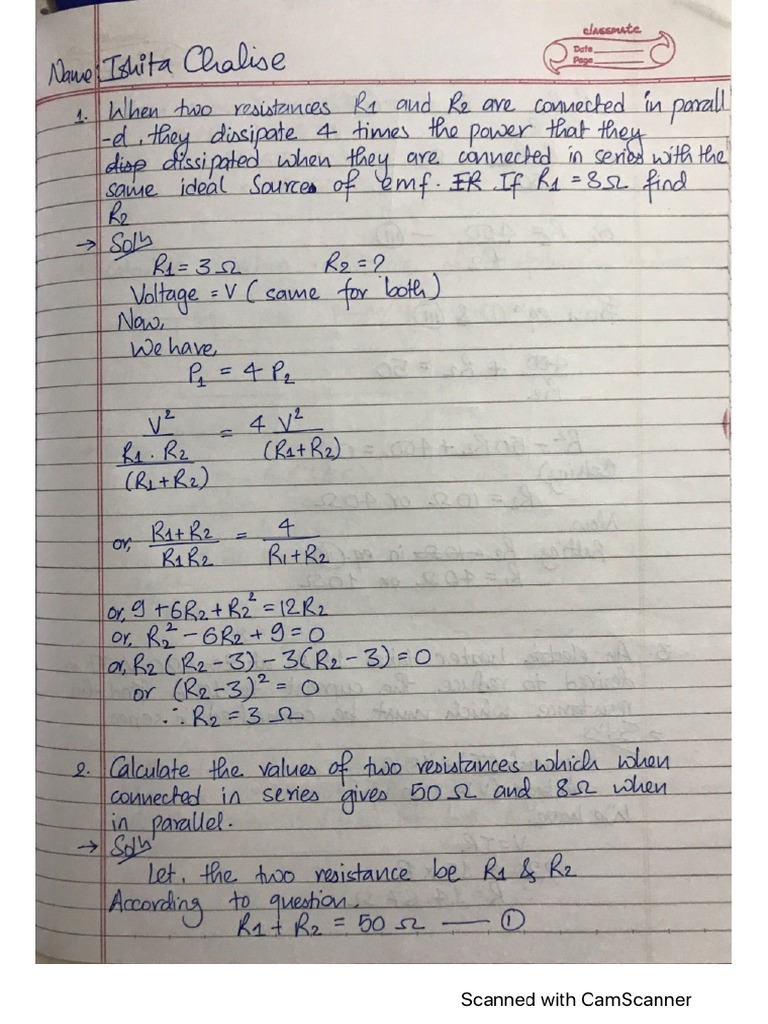 classmate
Date
Page
Name: Ishita Chalise
1. When two resistances R1 and R2 are connected in parall
-el, they dissipate 4 times the power that they
disp dissipated when they are connected in series with the
same ideal sources of emf. IR If R1 = 3Ω find
R2
→ Soln
R1 = 3Ω R2 = ?
Voltage = V (same for both)
Now,
We have,
P1 = 4 P2
V² / (R1 . R2 / (R1+R2)) = 4 V² / (R1+R2)
or, R1+R2 / R1R2 = 4 / R1+R2
or, 9 + 6R2 + R2² = 12R2
or, R2² - 6R2 + 9 = 0
or, R2 (R2 - 3) - 3(R2 - 3) = 0
or (R2-3)² = 0
∴ R2 = 3 Ω
2. Calculate the values of two resistances which when
connected in series gives 50 Ω and 8Ω when
in parallel.
→ Soln
Let, the two resistance be R1 & R2
According to question,
R1 + R2 = 50 Ω —— ①
Scanned with CamScanner